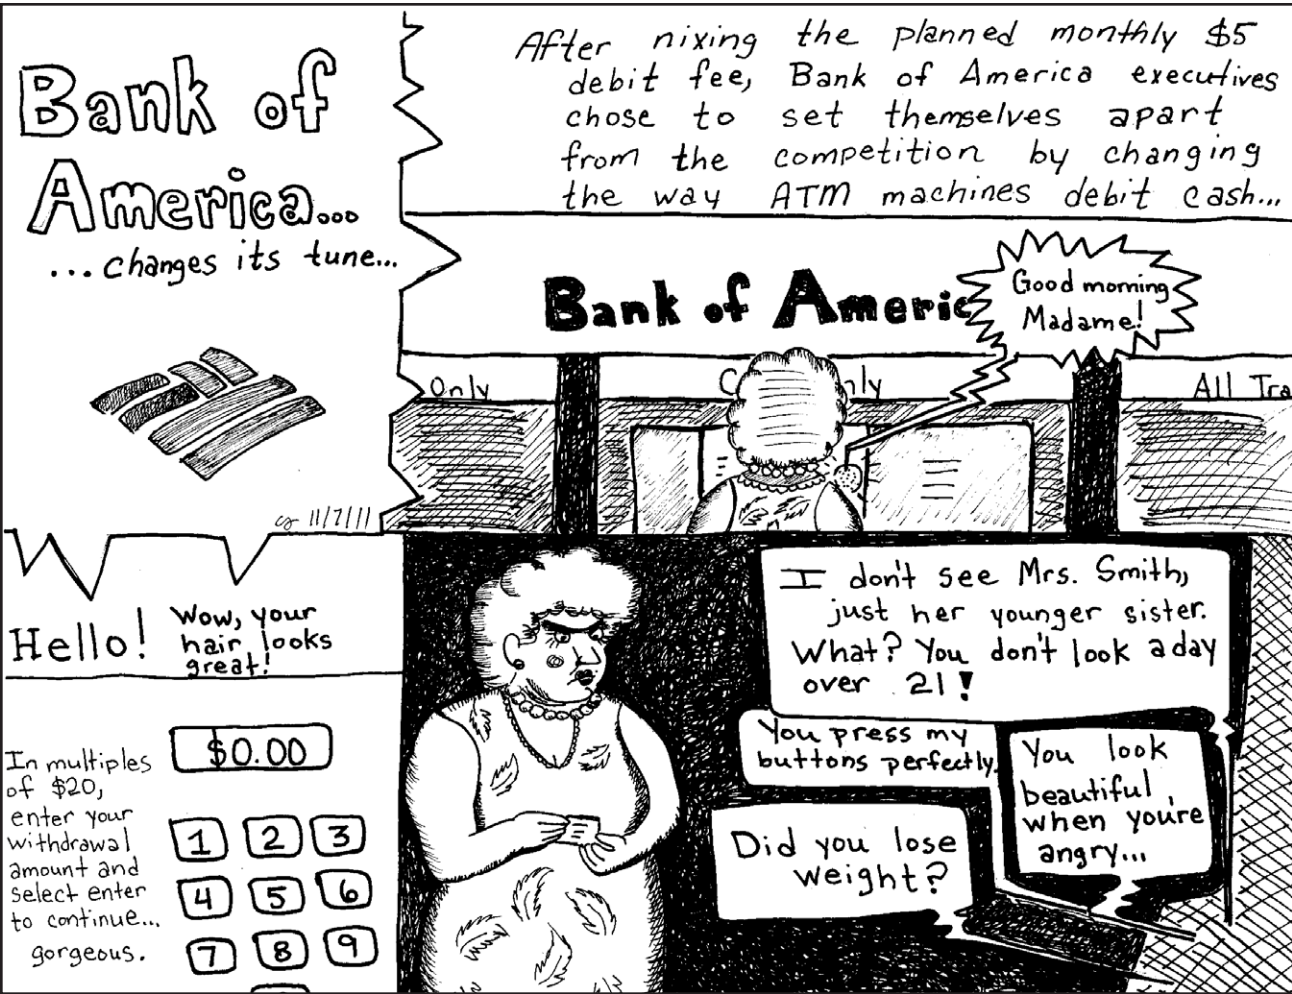 Bank of
America...
...changes its tune...
cg 11/7/11
After nixing the planned monthly $5
debit fee, Bank of America executives
chose to set themselves apart
from the competition by changing
the way ATM machines debit cash...
Bank of Americ
Good morning
Madame!
Only
C nly
All Tra
Hello!
Wow, your
hair looks
great!
$0.00
In multiples
of $20,
enter your
withdrawal
amount and
select enter
to continue...
gorgeous.
1 2 3
4 5 6
7 8 9
I don't see Mrs. Smith,
just her younger sister.
What? You don't look a day
over 21!
You press my
buttons perfectly.
You look
beautiful
when you're
angry...
Did you lose
weight?